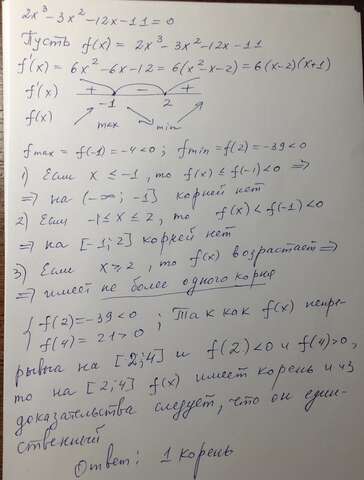 2x³-3x²-12x-11=0
Пусть f(x) = 2x³-3x²-12x-11
f'(x) = 6x²-6x-12 = 6(x²-x-2) = 6(x-2)(x+1)
f'(x) + - +
f(x) -1 2
max min
f max = f(-1) = -4<0 ; f min = f(2) = -39<0
1) Если x ≤ -1, то f(x) ≤ f(-1) <0 ⇒
⇒ на (-∞; -1] корней нет
2) Если -1≤x≤2, то f(x) < f(-1) <0
⇒ на [-1;2] корней нет
3) Если x ≥ 2, то f(x) возрастает ⇒
⇒ имеет не более одного корня
{ f(2) = -39<0
f(4) = 21>0 ; Так как f(x) непре-
рывна на [2;4] и f(2)<0 и f(4)>0,
то на [2;4] f(x) имеет корень и из
доказательства следует, что он един-
ственный
Ответ: 1 корень